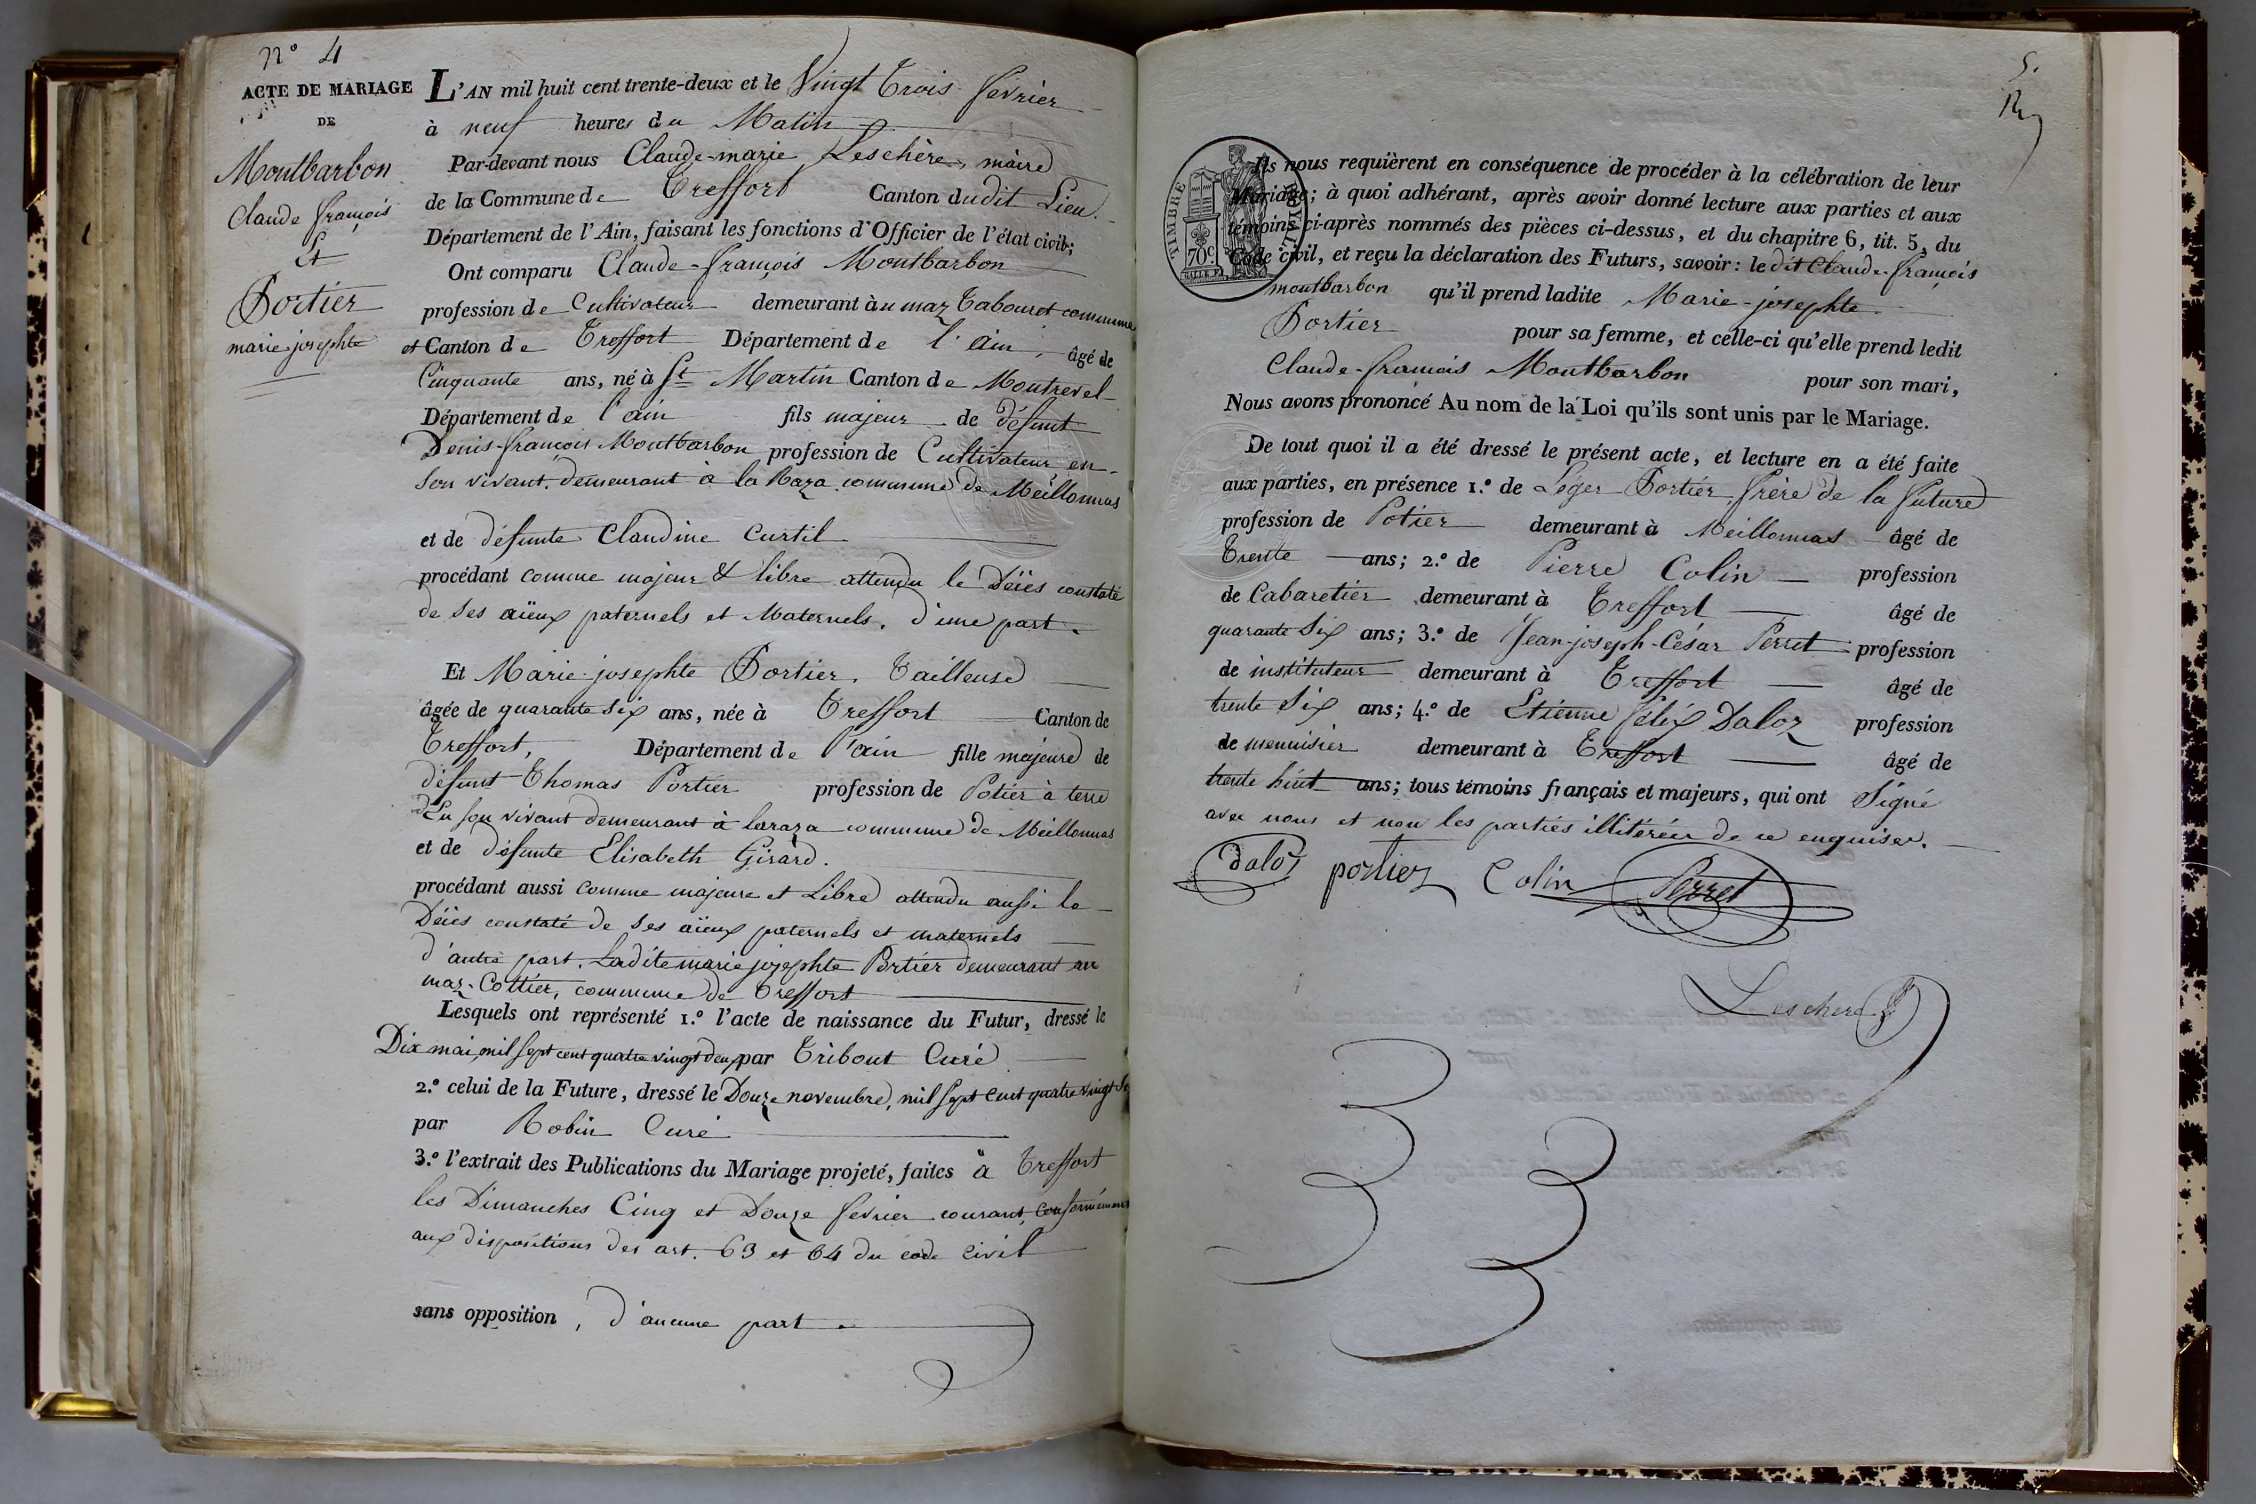 N° 4
ACTE DE MARIAGE
DE
Montbarbon
Claude françois
Et
Portier
marie josephte
L'AN mil huit cent trente-deux et le Vingt Trois fevrier
à neuf heures du Matin
Par-devant nous Claude-marie Leschère, maire
de la Commune de Treffort Canton dudit Lieu.
Département de l'Ain, faisant les fonctions d'Officier de l'état civil;
Ont comparu Claude-françois Montbarbon
profession de Cultivateur demeurant à au maz Tabouret commune
et Canton de Treffort Département de l'ain, âgé de
Cinquante ans, né à St Martin Canton de Montrevel
Département de l'ain fils majeur de défunt
Denis-françois Montbarbon profession de Cultivateur en
son vivant, demeurant à la Raza commune de Meillonnas
et de défunte Claudine Curtil
procédant comme majeur & libre attendu le Déies constaté
de ses aïeux paternels et Maternels. d'une part.
Et Marie-josephte Portier, Tailleuse
âgée de quarante six ans, née à Treffort Canton de
Treffort, Département de l'ain fille majeure de
défunt Thomas Portier profession de Potier à terre
En son vivant demeurant à laraza commune de Meillonnas
et de défunte Elisabeth Girard.
procédant aussi comme majeure et Libre attendu aussi le
Déies constaté de ses aïeux paternels et maternels
d'autre part. Ladite marie josephte Portier demeurant au
maz-Cottier, commune de Treffort
Lesquels ont représenté 1.º l'acte de naissance du Futur, dressé le
Dix mai, mil sept cent quatre vingt deux par Tribout Curé
2.º celui de la Future, dressé le Douze novembre, mil sept cent quatre vingt
par Robin Curé
3.º l'extrait des Publications du Mariage projeté, faites à Treffort
les Dimanches Cinq et Douze fevrier courant, conformément
aux dispositions des art. 63 et 64 du code civil
sans opposition, d'aucune part.
5.
TIMBRE ROYAL
70c
Ils nous requièrent en conséquence de procéder à la célébration de leur
Mariage; à quoi adhérant, après avoir donné lecture aux parties et aux
témoins ci-après nommés des pièces ci-dessus, et du chapitre 6, tit. 5, du
Code civil, et reçu la déclaration des Futurs, savoir: le dit Claude-françois
montbarbon qu'il prend ladite Marie-josephte
Portier pour sa femme, et celle-ci qu'elle prend ledit
Claude-françois Montbarbon pour son mari,
Nous avons prononcé Au nom de la Loi qu'ils sont unis par le Mariage.
De tout quoi il a été dressé le présent acte, et lecture en a été faite
aux parties, en présence 1.º de Leger Portier frère de la future
profession de Potier demeurant à Meillonnas âgé de
Trente ans; 2.º de Pierre Colin profession
de Cabaretier demeurant à Treffort âgé de
quarante Six ans; 3.º de Jean-joseph-César Perret profession
de instituteur demeurant à Treffort âgé de
trente Six ans; 4.º de Etienne félix Daloz profession
de menuisier demeurant à Treffort âgé de
trente huit ans; tous témoins français et majeurs, qui ont Signé
avec nous et non les parties illitérées de ce enquises.
daloz portier Colin Perret
Leschere